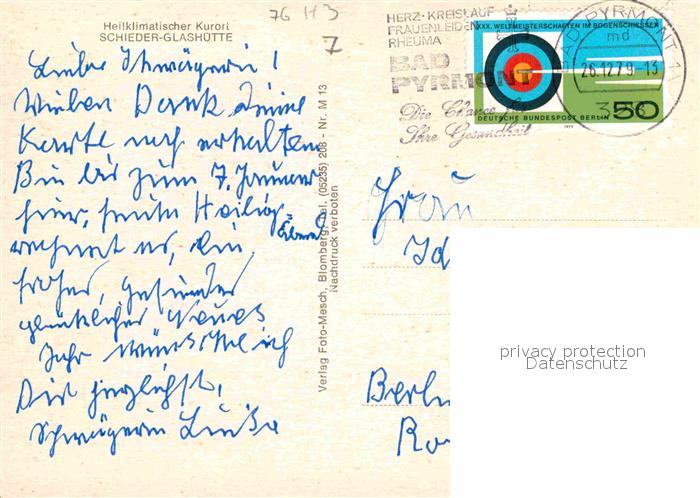 76 H3
7
Heilklimatischer Kurort
SCHIEDER-GLASHÜTTE
Liebe Schwägerin!
Vielen Dank Deine
Karte noch erhalten
Bin bis zum 7. Januar
hier, heute Heilig-
Abend
regnet es, ein
frohes, gesundes
glückliches Neues
Jahr wünsche ich
Dir herzlichst,
Schwägerin Luise
Verlag Foto-Mesch, Blomberg, Tel. (05235) 208 - Nr. M 13
Nachdruck verboten
HERZ-KREISLAUF
FRAUENLEIDEN
RHEUMA
BAD
PYRMONT
Die Chance
Ihre Gesundheit
XXX. WELTMEISTERSCHAFTEN IM BOGENSCHIESSEN
50
DEUTSCHE BUNDESPOST BERLIN
1979
BAD PYRMONT 1
md
26.12.79-13
Frau
Berlin
privacy protection
Datenschutz